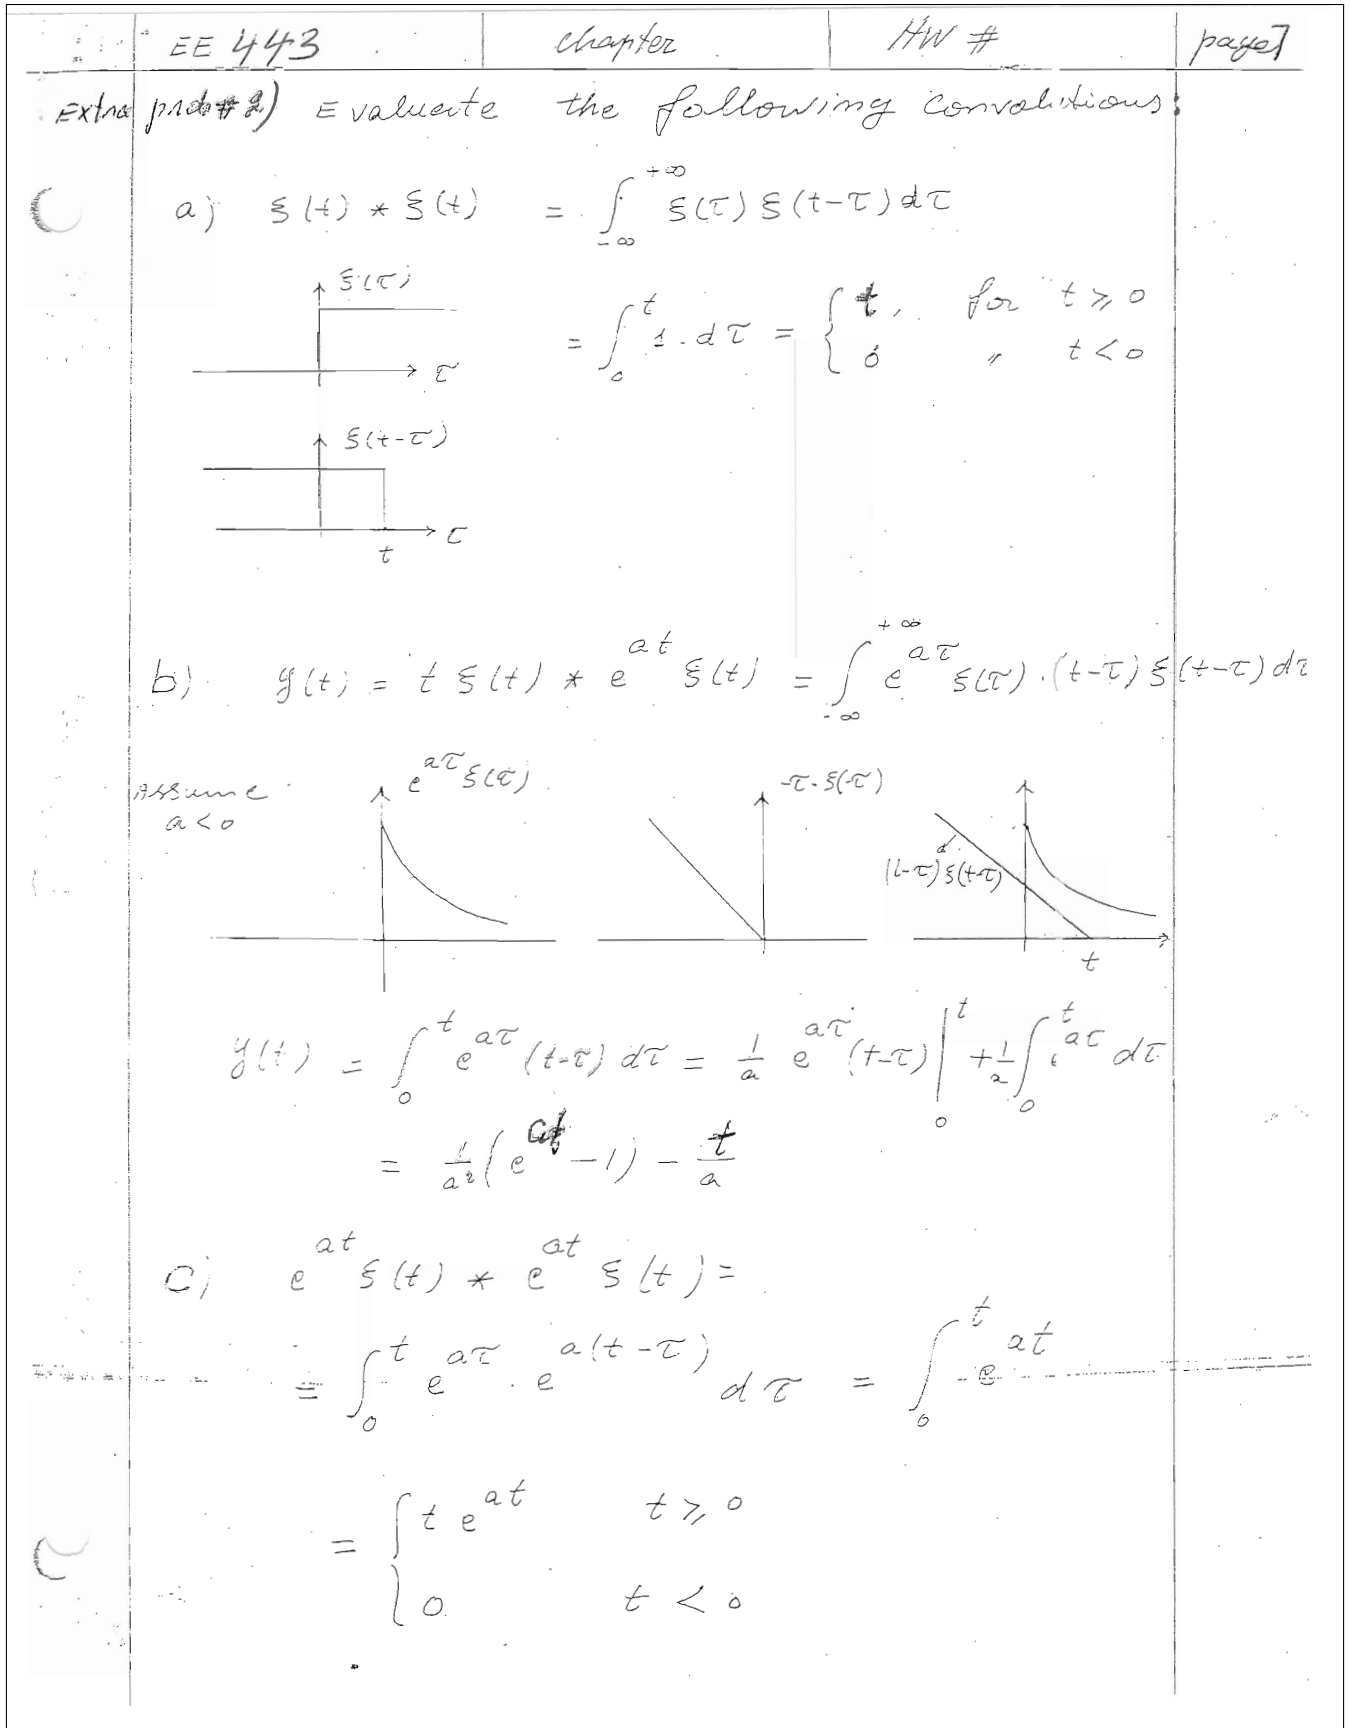 EE 443 chapter HW # page 7
Extra prob # 2) Evaluate the following convolutions:
a) ξ(t) * ξ(t) = ∫_{-∞}^{+∞} ξ(τ) ξ(t-τ) dτ
ξ(τ)
= ∫_0^t 1 · dτ = { t, for t ≥ 0
0 〃 t < 0
τ
ξ(t-τ)
τ
t
b) y(t) = t ξ(t) * e^{at} ξ(t) = ∫_{-∞}^{+∞} e^{aτ} ξ(τ) · (t-τ) ξ(t-τ) dτ
Assume a < 0
e^{aτ} ξ(τ)
-τ · ξ(-τ)
(t-τ) ξ(t-τ)
t
y(t) = ∫_0^t e^{aτ} (t-τ) dτ = 1/a e^{aτ} (t-τ) |_0^t + 1/a ∫_0^t e^{aτ} dτ
= 1/a² (e^{at} - 1) - t/a
c) e^{at} ξ(t) * e^{at} ξ(t) =
= ∫_0^t e^{aτ} · e^{a(t-τ)} dτ = ∫_0^t e^{at}
= { t e^{at} t ≥ 0
0 t < 0